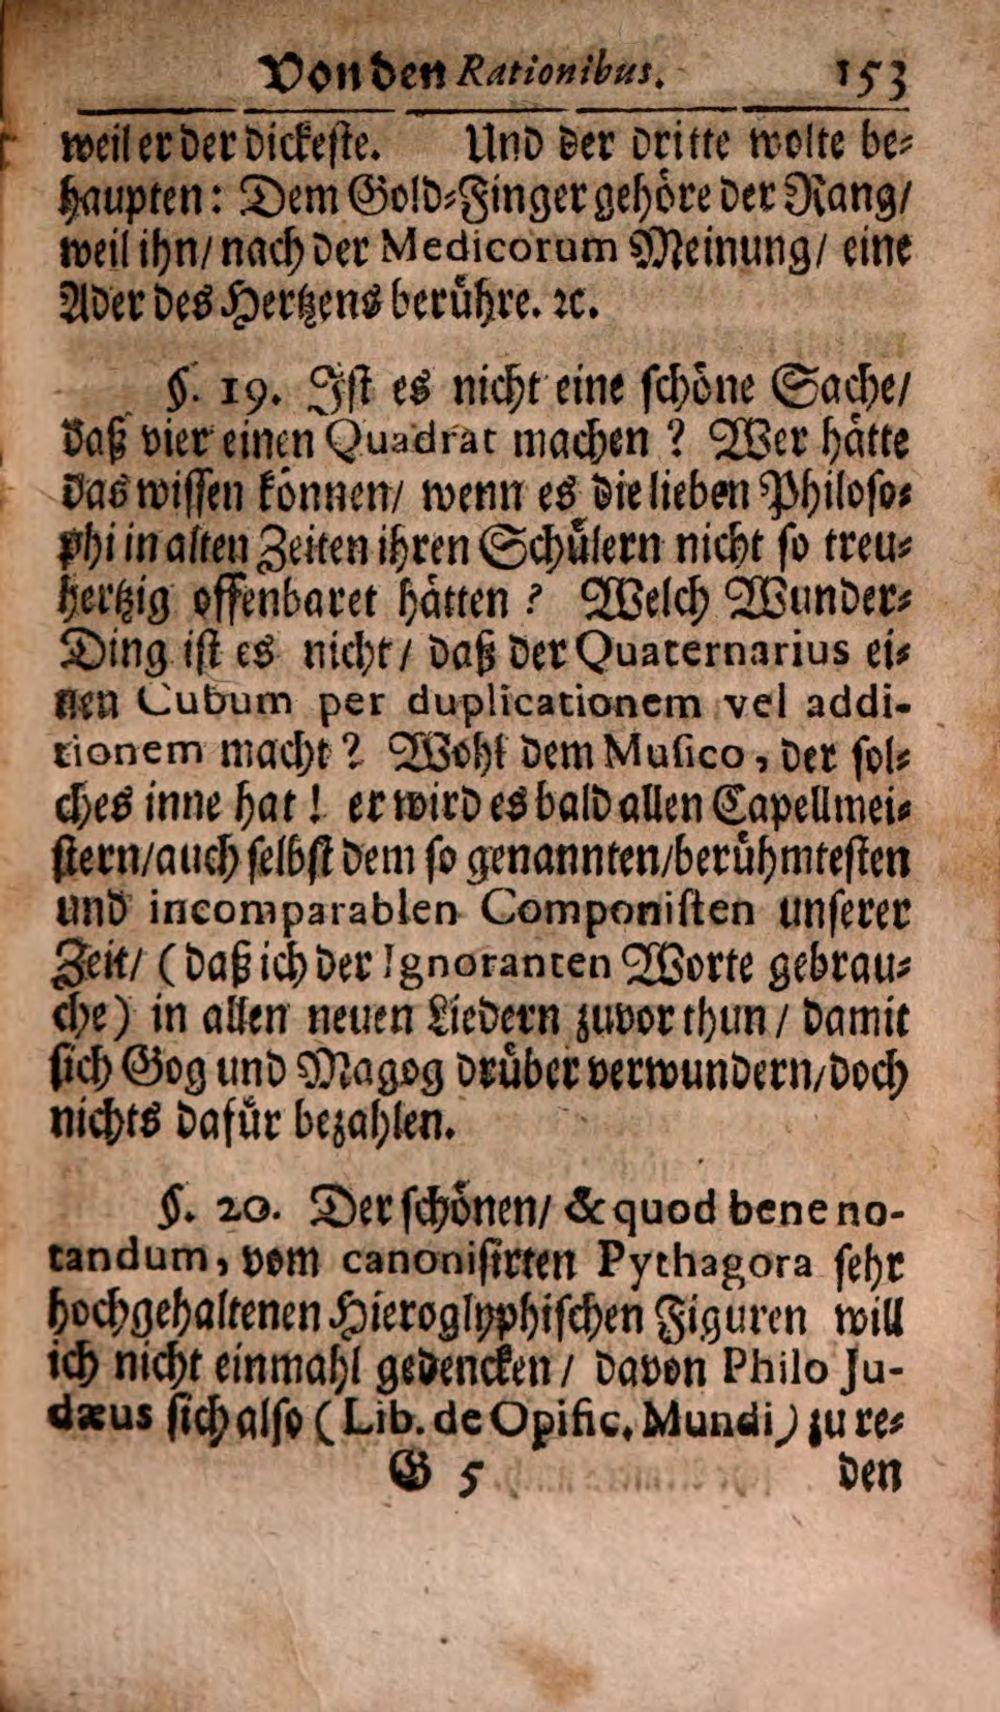 Von den Rationibus. 153
weil er der dickeste. Und der dritte wolte be⸗
haupten: Dem Gold⸗Finger gehöre der Rang/
weil ihn/ nach der Medicorum Meinung/ eine
Ader des Hertzens berühre. ꝛc.
§. 19. Ist es nicht eine schöne Sache/
daß vier einen Quadrat machen? Wer hätte
das wissen können/ wenn es die lieben Philoso⸗
phi in alten Zeiten ihren Schülern nicht so treu⸗
hertzig offenbaret hätten? Welch Wunder⸗
Ding ist es nicht/ daß der Quaternarius ei⸗
nen Cubum per duplicationem vel addi-
tionem macht? Wohl dem Musico, der sol⸗
ches inne hat! er wird es bald allen Capellmei⸗
stern/auch selbst dem so genannten/berühmtesten
und incomparablen Componisten unserer
Zeit/ (daß ich der Ignoranten Worte gebrau⸗
che) in allen neuen Liedern zuvor thun/ damit
sich Gog und Magog drüber verwundern/doch
nichts dafür bezahlen.
§. 20. Der schönen/ & quod bene no-
tandum, vom canonisirten Pythagora sehr
hochgehaltenen Hieroglyphischen Figuren will
ich nicht einmahl gedencken/ davon Philo Ju-
dæus sich also (Lib. de Opific. Mundi) zu re⸗
G 5 den